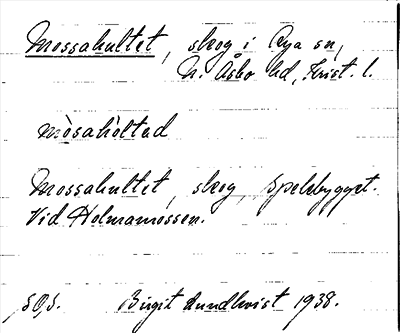 Mossahultet, skog i Rya sn,
N. Åsbo hd, Krist. l.
mòsahòltad
Mossahultet, skog,
Vid Holmamossen.
SOS. Birgit Lundkvist 1938.